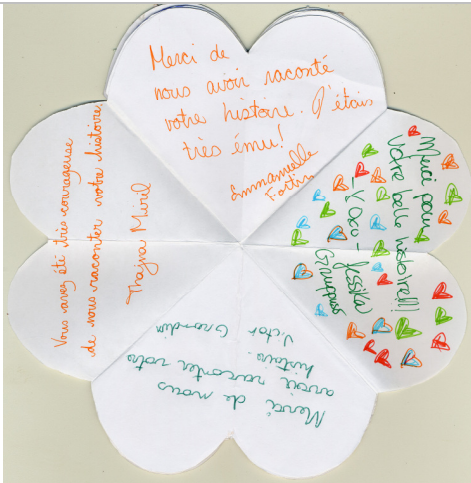 Merci de
nous avoir raconté
votre histoire. J'étais
très ému!
Emmanuelle
Fortin
Merci pour
votre belle histoire!!!
Jessika
Merci de nous
avoir raconter votre
histoire.
Victor Grondin
Vous avez été très courageuse
de nous raconter votre histoire.
Thayna Miril